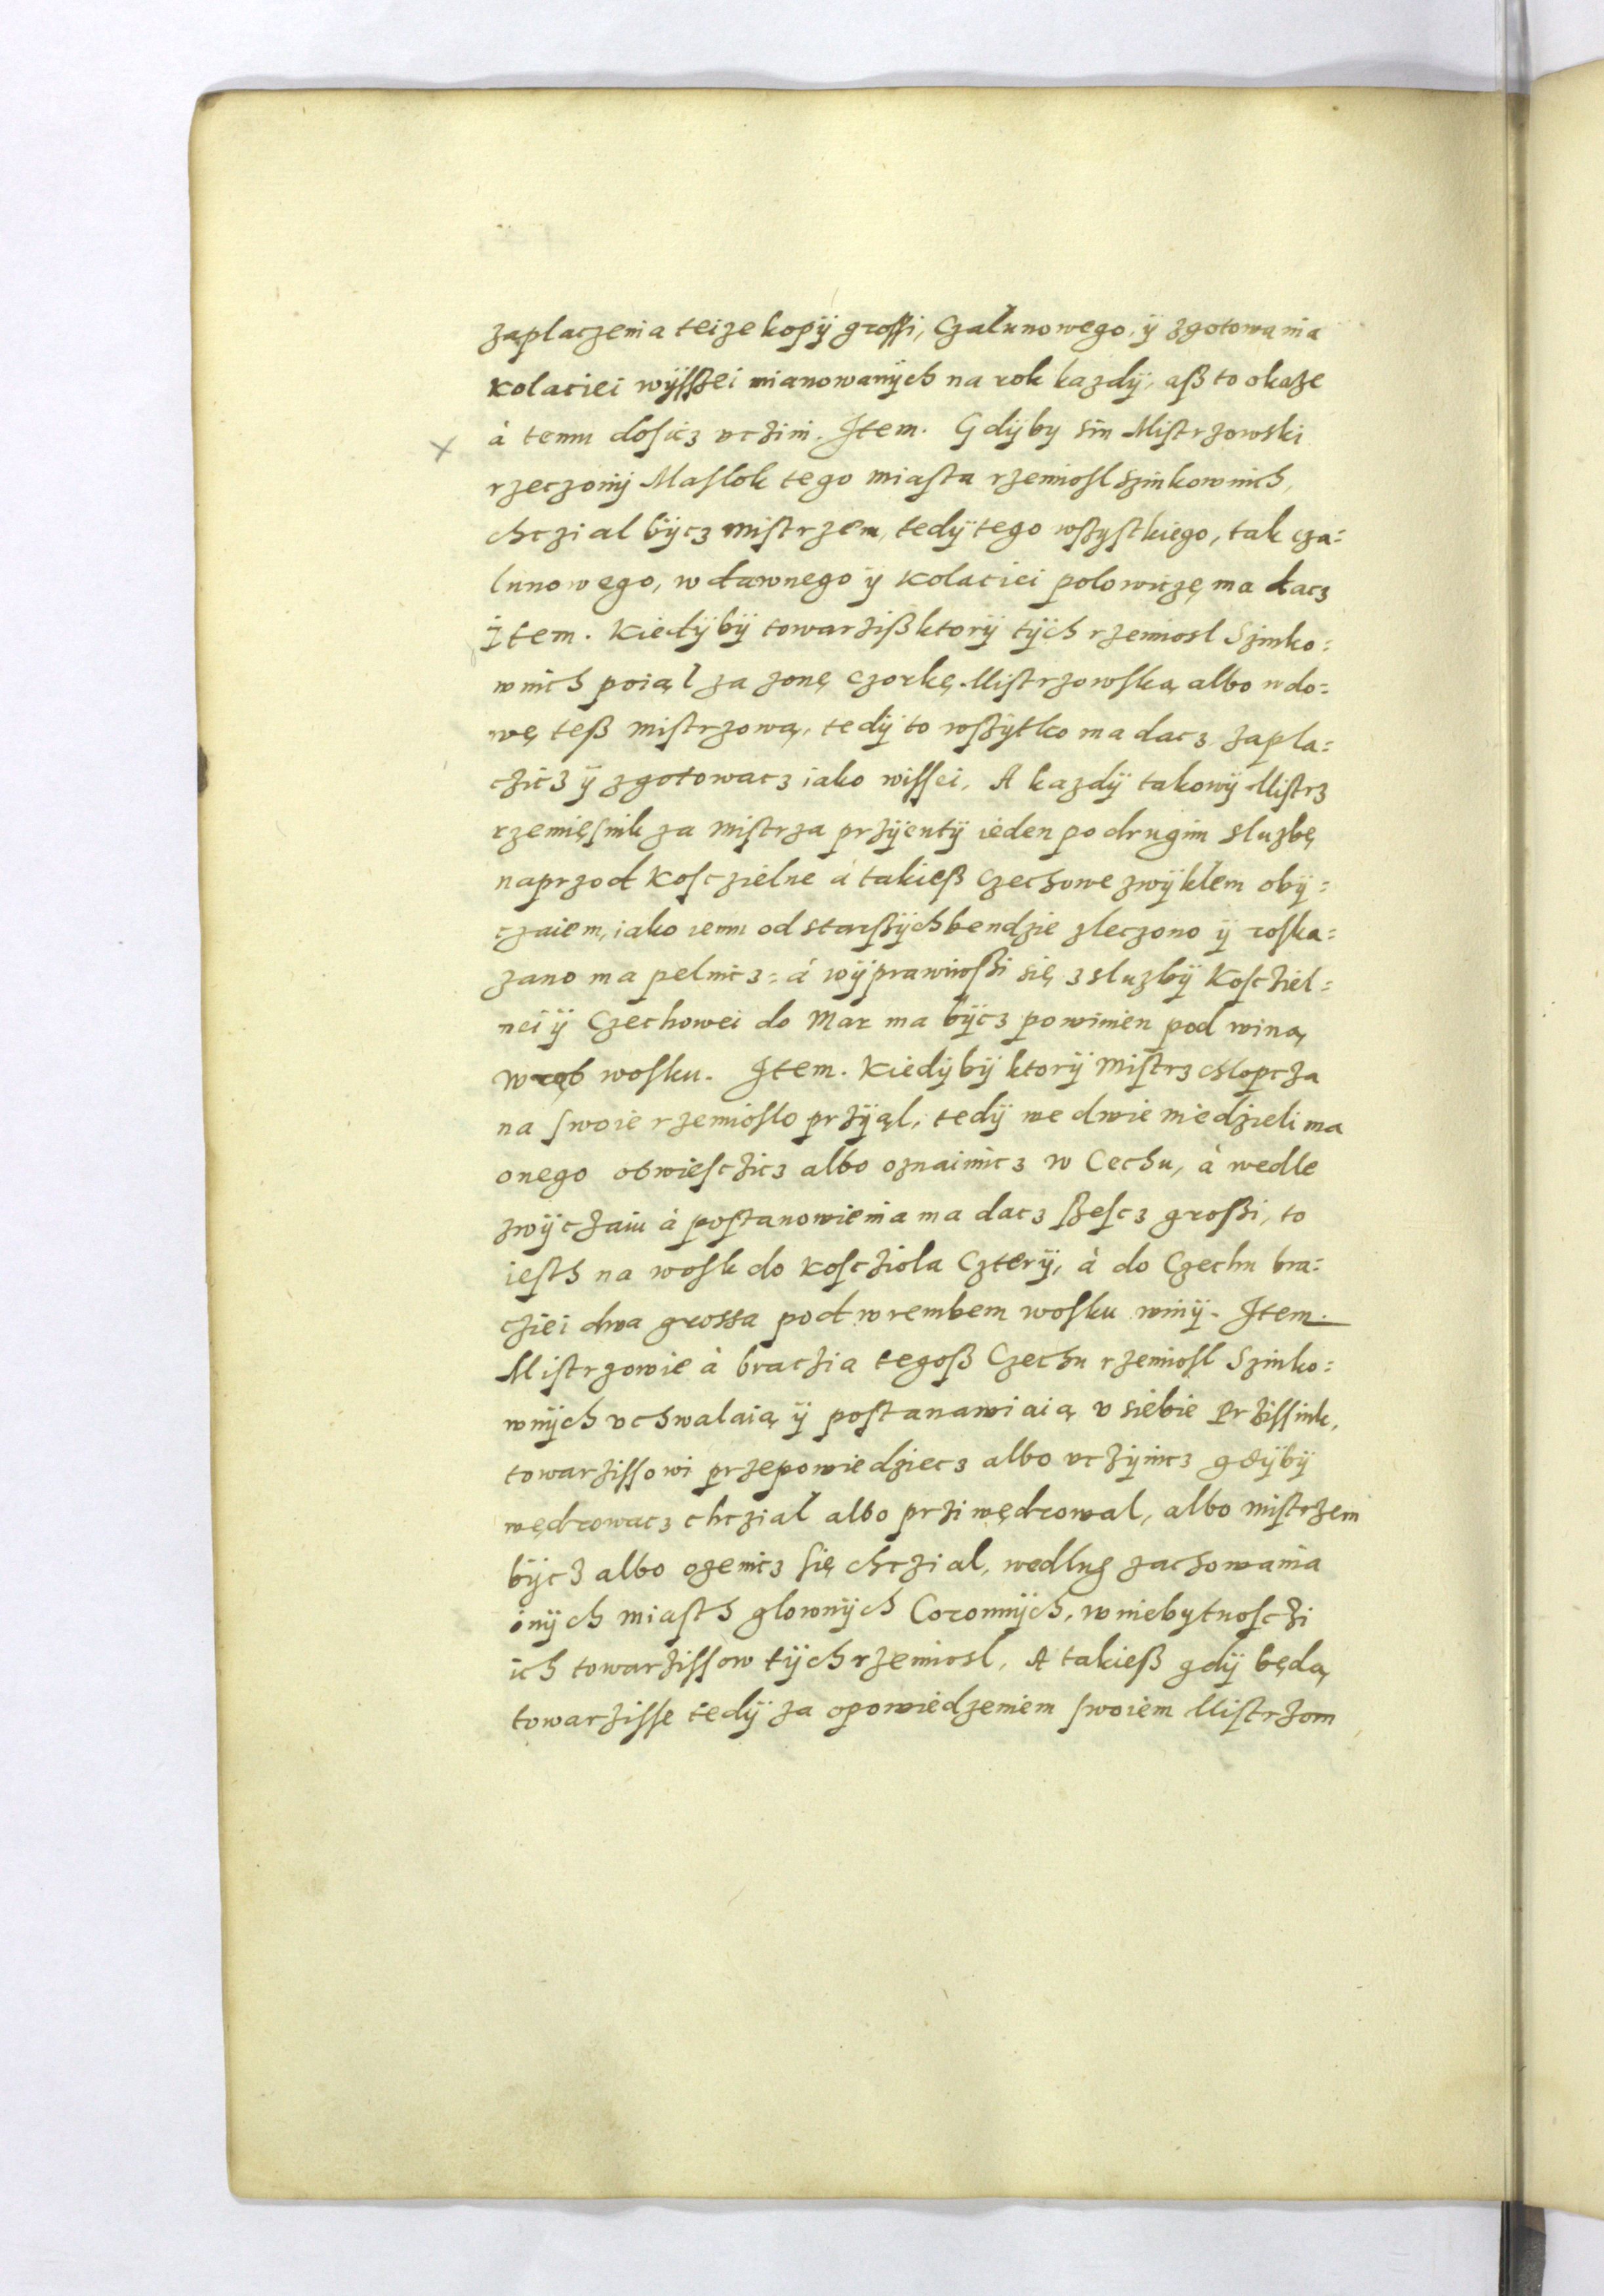 zaplaczenia teize kopÿ grossi, Czalunowego, ÿ zgotowania
kolaciei wÿsßei mianowanÿch na rok kazdÿ, aß to okaze
à temu dosicz vczini. Item. Gdÿby sin Mistrzowski
rzeczonÿ Maslok tego miasta rzemiosl Szinkownich,
chczial bÿcz mistrzem, tedÿ tego wszystkiego, tak cza=
lunowego, wstawnego ÿ kolaciei polowiczę ma dacz
Item. Kiedÿbÿ towarziß ktorÿ tÿch rzemiosl Szinko=
wnich poiąl za zonę czorkę Mistrzowską albo wdo=
wę teß mistrzową, tedÿ to wszÿtko ma dacz zapla=
czicz ÿ zgotowacz iako wissei, A kazdÿ takowÿ Mistrz
rzemięsnik za mistrza przÿentÿ ieden po drugim sluzbę
naprzod kosczielne à takieß Czechowe zwÿklem obÿ=
czaiem, iako iemu od starßÿch bendzie zleczono ÿ roska=
zano ma pelnicz = à wÿprawiwßi się z sluzbÿ Kosciel=
nei ÿ Czechowei do Mar ma bÿcz powinien pod winą
wręb wosku. Item. Kiedÿbÿ ktorÿ Mistrz chlopcza
na swoie rzemioslo przÿąl, tedÿ we dwie niedzieli ma
onego obwiesczicz albo oznaimicz w Cechu, à wedle
zwÿczaiu à postanowienia ma dacz ßescz großi, to
iesth na wosk do kosczola Czterÿ, à do Czechu bra=
cziei dwa grossa pod wrembem wosku winÿ. Item.
Mistrzowie à braczia tegoß Czechu rzemiosl Szinko=
wnÿch vchwalaią ÿ postanawiaią v siebie Przissink,
towarzissowi przepowiedziecz albo vczÿnicz gdÿbÿ
wędrowacz chczial albo przi wędrowal, albo mistrzem
bÿcz albo ozenicz się chczial, wedlug zachowania
inÿch miasth glownÿch Coronnÿch, w niebytnosczi
ich towarzissow tÿch rzemiosl, A takieß gdÿ będą
towarzisse tedÿ za opowiedzeniem swoiem Mistrzom